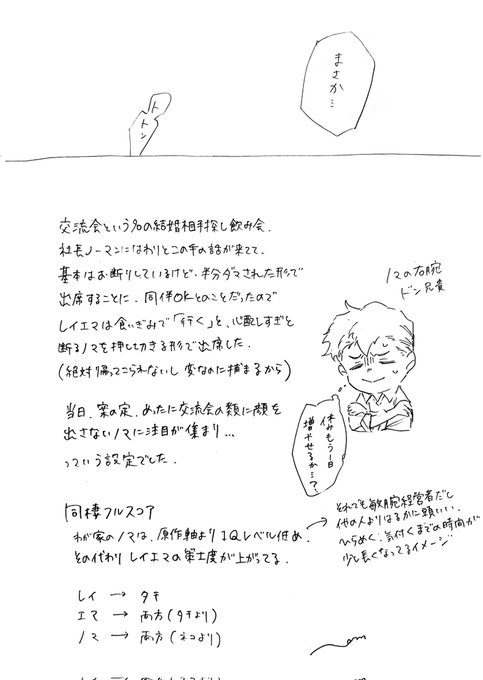 まさか…
トトン
交流会という名の結婚相手探し飲み会.
社長ノーマンにはわりとこの手の話が来てて.
基本はお断りしているけど、半分ダマされた形で
出席することに. 同伴OKとのことだったので
レイエマは食いぎみで「行く」と、心配しすぎと
断るノマを押し切る形で出席した.
(絶対帰ってこられないし変なのに捕まるから)
当日、案の定、めったに交流会の類に顔を
出さないノマに注目が集まり…
っていう設定でした.
ノマの右腕
ドン兄貴
休みもう1日
増やせるか…?
同棲フルスコア
わが家のノマは、原作軸よりIQレベル低め.
その代わりレイエマの策士度が上がってる.
それでも敏腕経営者だし
他の人よりはるかに頭いい.
ひらめく、気付くまでの時間が
少し長くなってるイメージ
レイ → タチ
エマ → 両方(タチより)
ノマ → 両方(ネコより)